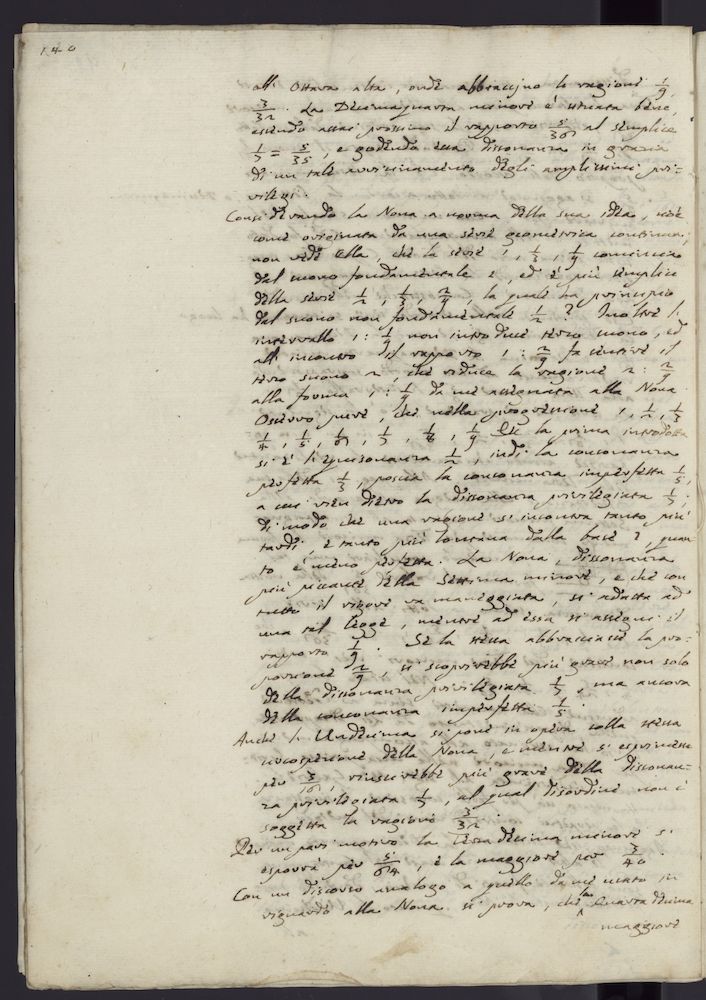 140
all' Ottava alta, onde abbraccino le ragioni 1/9,
3/32. La Decimaquarta minore è situata bene,
essendo assai prossimo il rapporto 5/36 al semplice
1/7 = 5/35, e godendo essa dissonanza in grazia
di un tale avvicinamento degli amplissimi pri-
vilegi.
Considerando la Nona a norma della sua idea, cioè
come originata da una serie geometrica continua,
non vede Ella, che la serie 1, 1/3, 1/9 comincia
dal suono fondamentale 1, ed è più semplice
della serie 1/2, 1/3, 2/9, la quale ha principio
dal suono non fondamentale 1/2? Inoltre l'
intervallo 1 : 1/9 non introduce terzo suono, ed
all' incontro il rapporto 1 : 2/9 fa sentire il
terzo suono 2, che riduce la ragione 2 : 2/9
alla forma 1 : 1/9 da me assegnata alla Nona.
Osservo pure, che nella progressione 1, 1/2, 1/3
1/4, 1/5, 1/6, 1/7, 1/8, 1/9 la prima introdotta
si è l'equisonanza 1/2, indi la consonanza
perfetta 1/3, poscia la consonanza imperfetta 1/5,
a cui vien dietro la dissonanza privilegiata 1/7:
di modo che una ragione s'incontra tanto più
tardi, e tanto più lontana dalla base 1, quan
to è meno perfetta. La Nona, dissonanza
più piccante della Settima minore, e che con
tutto il rigore va maneggiata, si adatta ad
una tal legge, mentre ad essa si assegni il
rapporto 1/9. Se la stessa abbracciasse la pro-
porzione 2/9, si scoprirebbe più grave non solo
della dissonanza privilegiata 1/7, ma ancora
della consonanza imperfetta 1/5.
Anche l'Undecima si pone in opera colla stessa
circospezione della Nona, e mentre s'esprimesse
per 3/16, riuscirebbe più grave della dissonan-
za privilegiata 1/7, al qual disordine non è
soggetta la ragione 3/32.
Per un pari motivo la terza decima minore s'
esporrà per 5/64, e la maggiore per 3/40.
Con un discorso analogo a quello da me usato in
riguardo alla Nona si prova, che la Quarta decima
maggiore